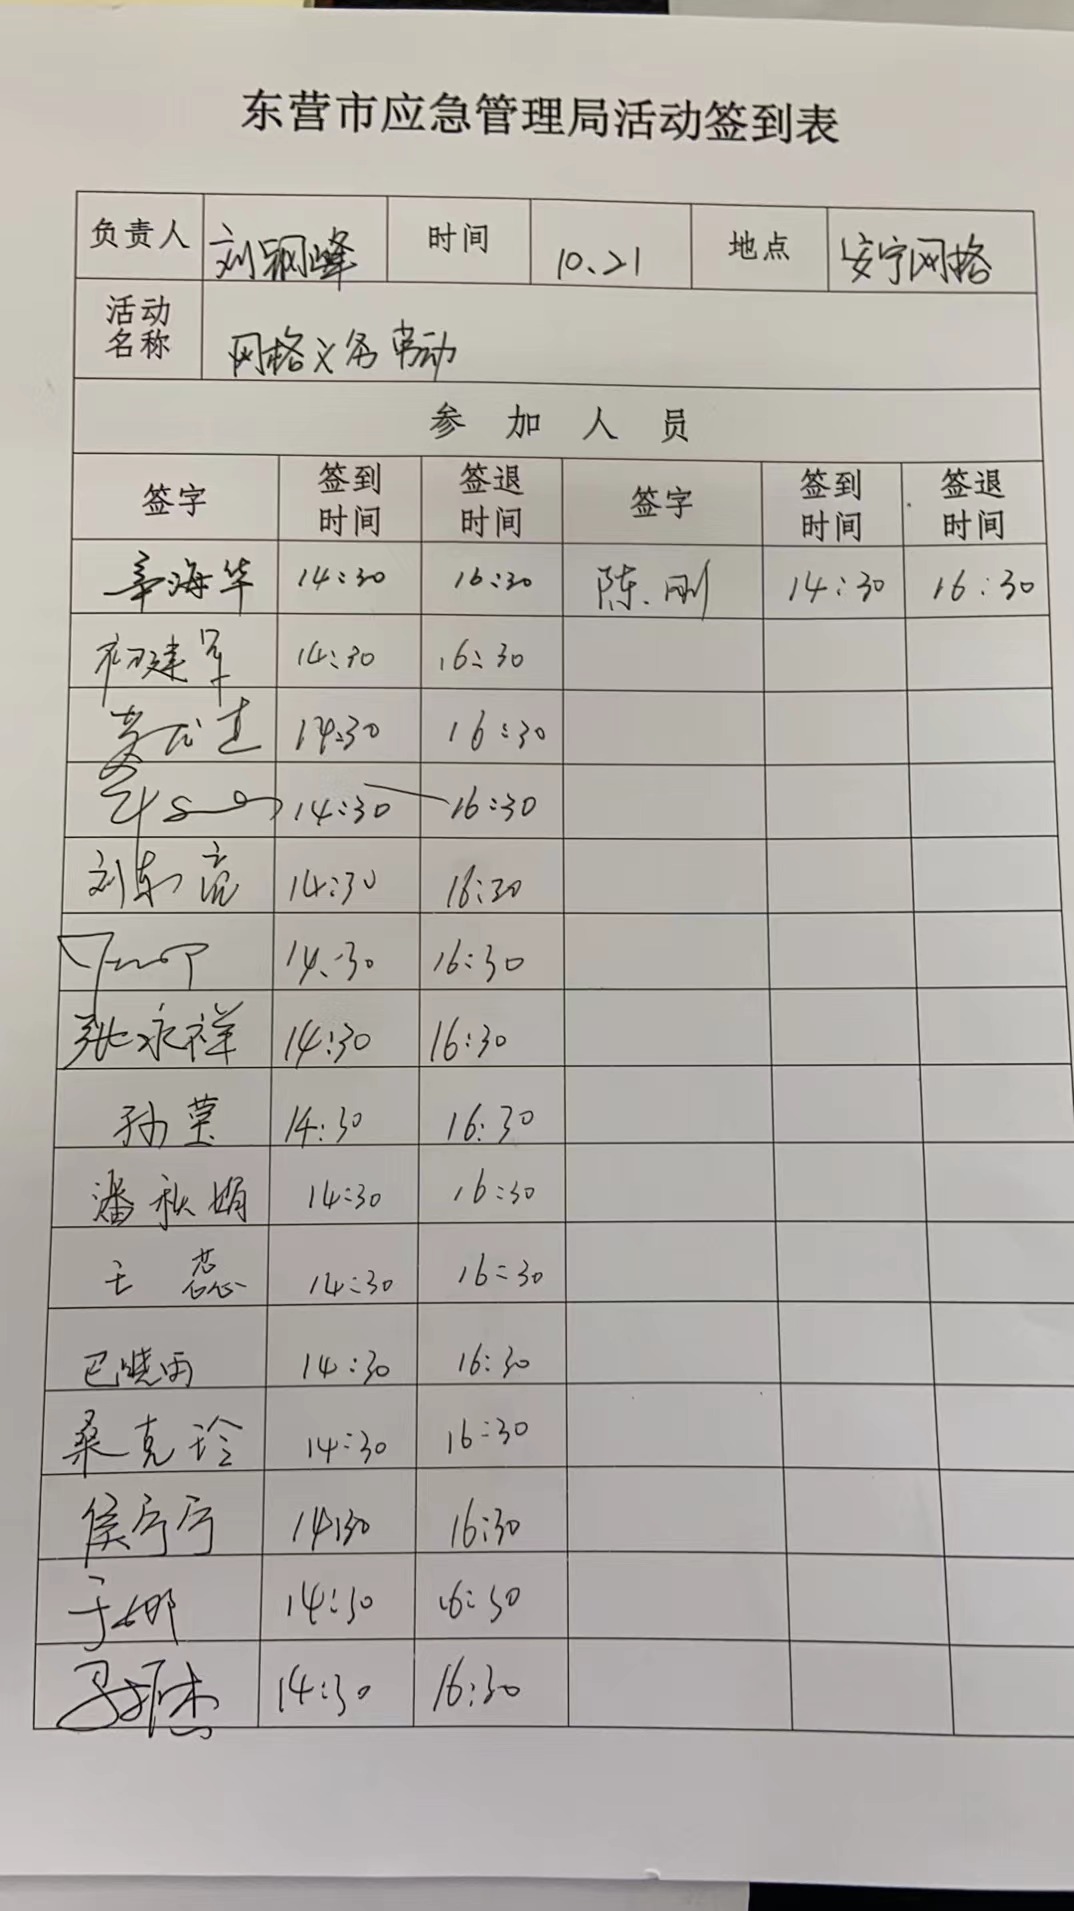 东营市应急管理局活动签到表
负责人 刘颖峰 时间 10.21 地点 安宁网格
活动名称 网格义务劳动
参加人员
签字 签到时间 签退时间 签字 签到时间 签退时间
辛海华 14:30 16:30 陈刚 14:30 16:30
初建军 14:30 16:30
14:30 16:30
14:30 16:30
刘东亮 14:30 16:30
14:30 16:30
张永祥 14:30 16:30
孙莹 14:30 16:30
潘秋娟 14:30 16:30
王蕊 14:30 16:30
巴晓雨 14:30 16:30
桑克玲 14:30 16:30
侯亏亏 14:30 16:30
于娜 14:30 16:30
14:30 16:30